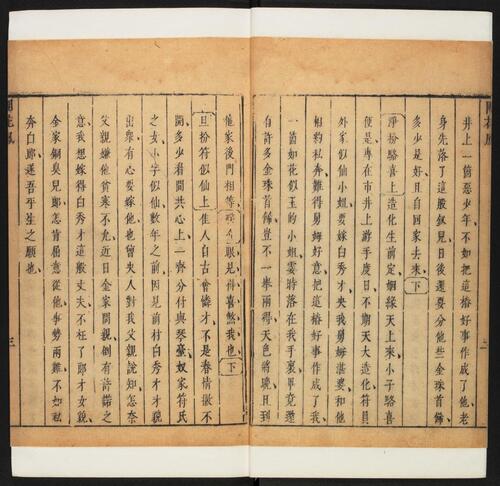 井上一箇惡少年不如把這樁好事作成了他老
身先落了這股釵兒日後還要分他些金珠首飾
多少是好且自回家去來下
淨扮駱喜上造化生前定姻緣天上來小子駱喜
便是專在市井上游手度日不期天大造化符員
外家似仙小姐要嫁白秀才央我舅姆湛婆和他
相約私奔難得舅姆好意把這樁好事作成了我
一箇如花似玉的小姐霎時落在我手裏畢竟還
有許多金珠首飾豈不一舉兩得天色將晚且到
他家後門相等眼見得喜煞我也下
旦扮符似仙上佳人自古會憐才不是春情撇不
開多少看開共心上一齊分付與琴臺奴家符氏
之女小字似仙數年之前因見前村白秀才才貌
出衆有心要嫁他也曾央人對我父親說知怎奈
父親嫌他貧寒不允近日金家問親倒有許諾之
意我想嫁得白秀才這般丈夫不枉了郎才女貌
金家銅臭兒郎怎肯屈意從他事勢兩難不如私
奔白郎遂吾平生之願也
三